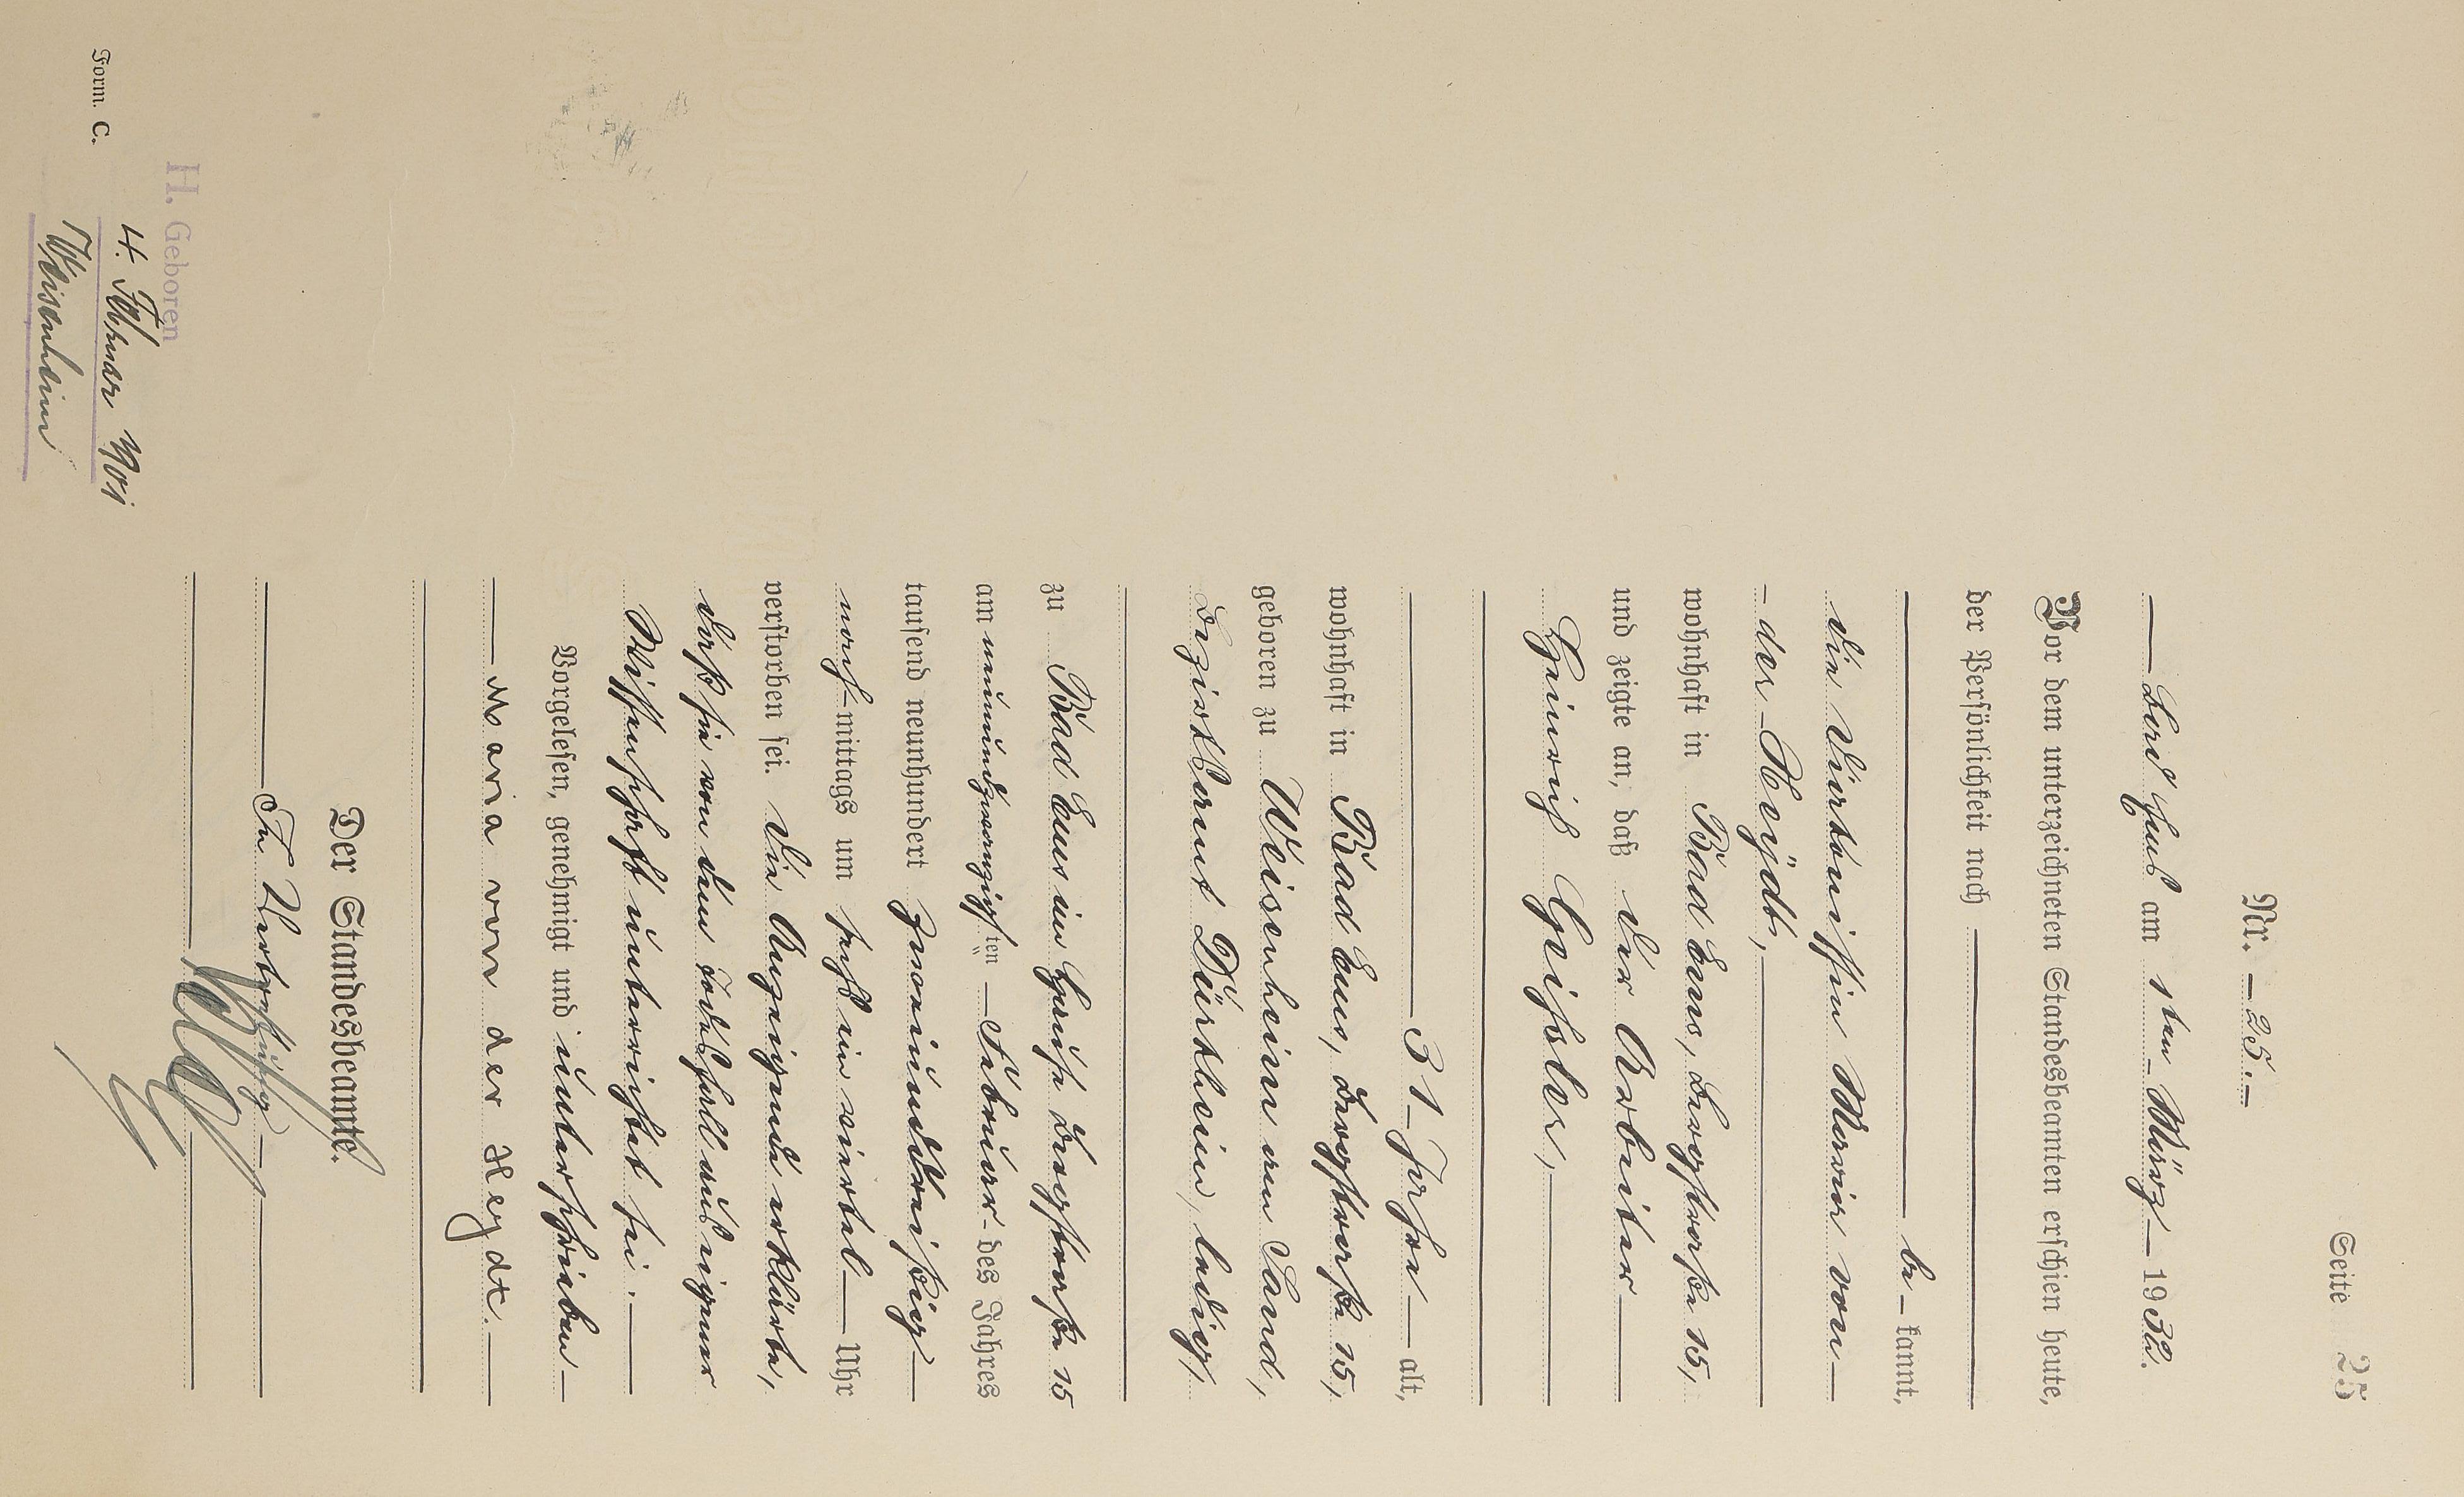 Seite 25
Nr. — 25. —
— Bad Ems am 1ten — März — 1932.
Vor dem unterzeichneten Standesbeamten erschien heute,
der Persönlichkeit nach
be — kannt,
die Diakonissin Maria von —
— der — Heydt, —
wohnhaft in Bad Ems, Bergstraße 15,
und zeigte an, daß der Arbeiter —
Heinrich Geißler, —
— 31 — Jahre — alt,
wohnhaft in Bad Ems, Bergstraße 15,
geboren zu Weisenheim am Sand,
Bezirksamt Dürkheim, ledig,
zu Bad Ems im Hause Bergstraße 15
am neunundzwanzigsten — Februar — des Jahres
tausend neunhundert zweiunddreißig —
nach — mittags um sechs ein viertel — Uhr
verstorben sei. Die Anzeigende erklärte,
daß sie von dem Todesfall aus eigener
Wissenschaft unterrichtet sei. —
Vorgelesen, genehmigt und unterschrieben —
— Maria von der Heydt. —
Der Standesbeamte.
— In Vertretung —
H. Geboren
4. Februar 1901
Weisenheim
Form. C.